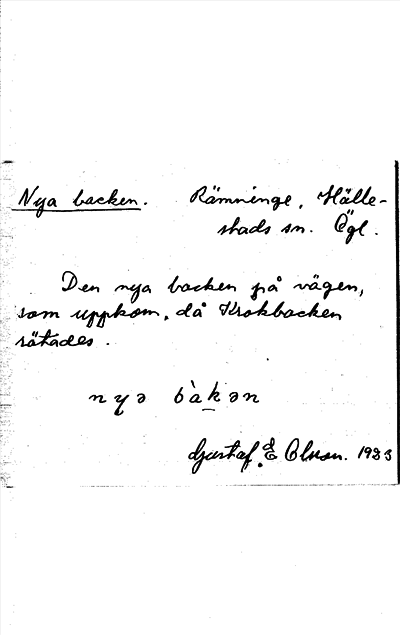 Nya backen. Rämninge, Hälle-
stads sn. Ögl.
Den nya backen på vägen,
som uppkom, då Krokbacken
rätades.
nyə bàkən
Gustaf E Olsson. 1933